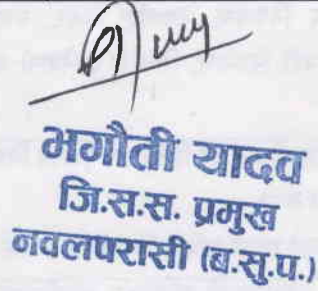 भगौती यादव
जि.स.स. प्रमुख
नवलपरासी (ब.सु.प.)